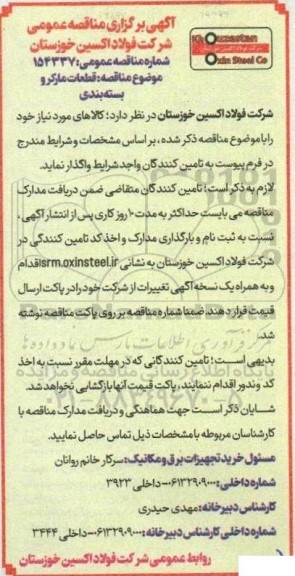 آگهی برگزاری مناقصه عمومی
شرکت فولاد اکسین خوزستان
Khoozestan
Oxin Steel Co
شماره مناقصه عمومی: ۱۵۴۳۳۷
موضوع مناقصه: قطعات مارکر و
بسته‌بندی
شرکت فولاد اکسین خوزستان در نظر دارد؛ کالاهای مورد نیاز خود
را با موضوع مناقصه ذکر شده، بر اساس مشخصات و شرایط مندرج
در فرم پیوست به تامین کنندگان واجد شرایط واگذار نماید.
لازم به ذکر است؛ تامین کنندگان متقاضی ضمن دریافت مدارک
مناقصه می بایست حداکثر به مدت ۱۰ روز کاری پس از انتشار آگهی،
نسبت به ثبت نام و بارگذاری مدارک و اخذ کد تامین کنندگی در
شرکت فولاد اکسین خوزستان به نشانی srm.oxinsteel.ir اقدام
و به همراه یک نسخه آگهی تغییرات از شرکت خود را در پاکت ارسال
قیمت قرار دهند. ضمنا شماره مناقصه بر روی پاکت مناقصه نوشته
شد.
بدیهی است؛ تامین کنندگانی که در مهلت مقرر نسبت به اخذ
کد وندور اقدام ننمایند، پاکت قیمت آنها بازگشایی نخواهد شد.
شایان ذکر است جهت هماهنگی و دریافت مدارک مناقصه با
کارشناسان مربوطه با مشخصات ذیل تماس حاصل نمایید.
مسئول خرید تجهیزات برق و مکانیک: سرکار خانم روانان
شماره داخلی: ۰۶۱۳۲۹۰۹۰۰۰-داخلی ۳۹۲۳
کارشناس دبیرخانه: مهدی حیدری
شماره داخلی کارشناس دبیرخانه: ۰۶۱۳۲۹۰۹۰۰۰-داخلی ۳۴۴۴
روابط عمومی شرکت فولاد اکسین خوزستان